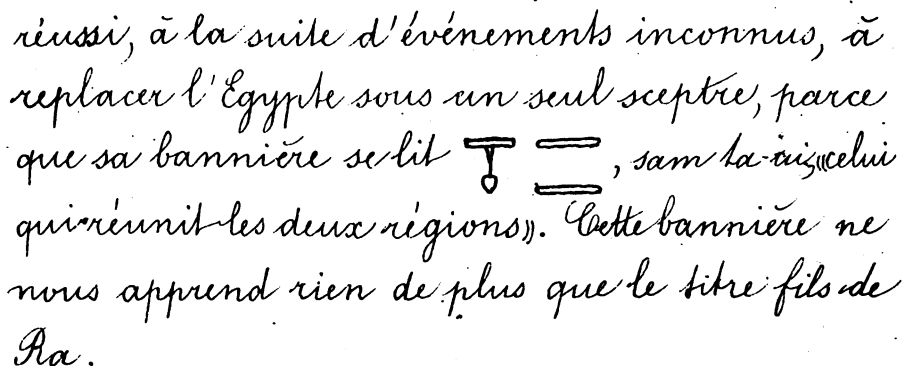 réussi, à la suite d'événements inconnus, à
replacer l'Egypte sous un seul sceptre, parce
que sa bannière se lit , sam ta-ui, «celui
qui réunit les deux régions». Cette bannière ne
nous apprend rien de plus que le titre fils de
Ra.